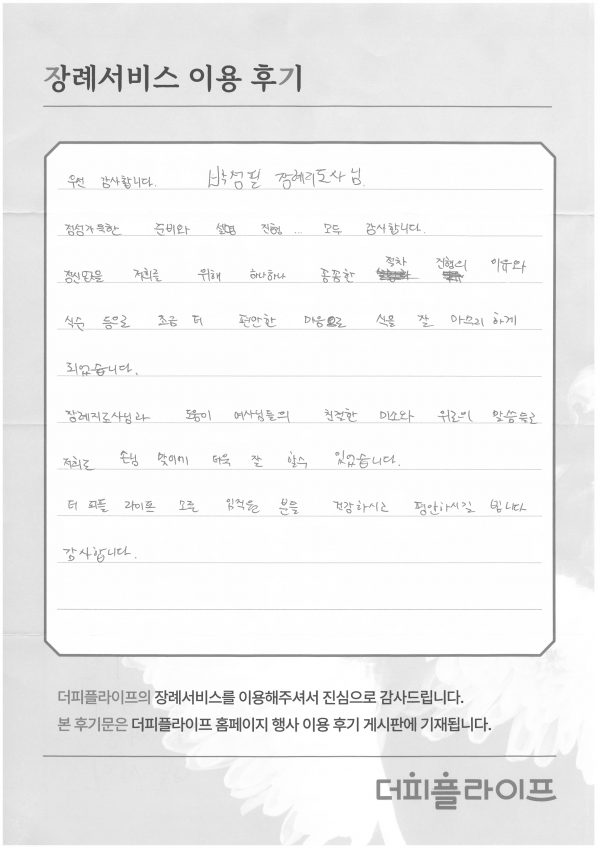 장례서비스 이용 후기
우선 감사합니다. 박점필 장례지도사님.
정성가득한 준비와 설명 진행... 모두 감사합니다.
저희를 위해 하나하나 꼼꼼한 절차 진행의 이유와
식순 등으로 조금 더 편안한 마음으로 식을 잘 마무리 하게
되었습니다.
장례지도사님과 도움이 여사님들의 친절한 미소와 위로의 말씀들로
저희도 손님 맞이에 더욱 잘 할수 있었습니다.
더 피플 라이프 모든 임직원 분들 건강하시고 평안하시길 빕니다
감사합니다.
더피플라이프의 장례서비스를 이용해주셔서 진심으로 감사드립니다.
본 후기문은 더피플라이프 홈페이지 행사 이용 후기 게시판에 기재됩니다.
더피플라이프